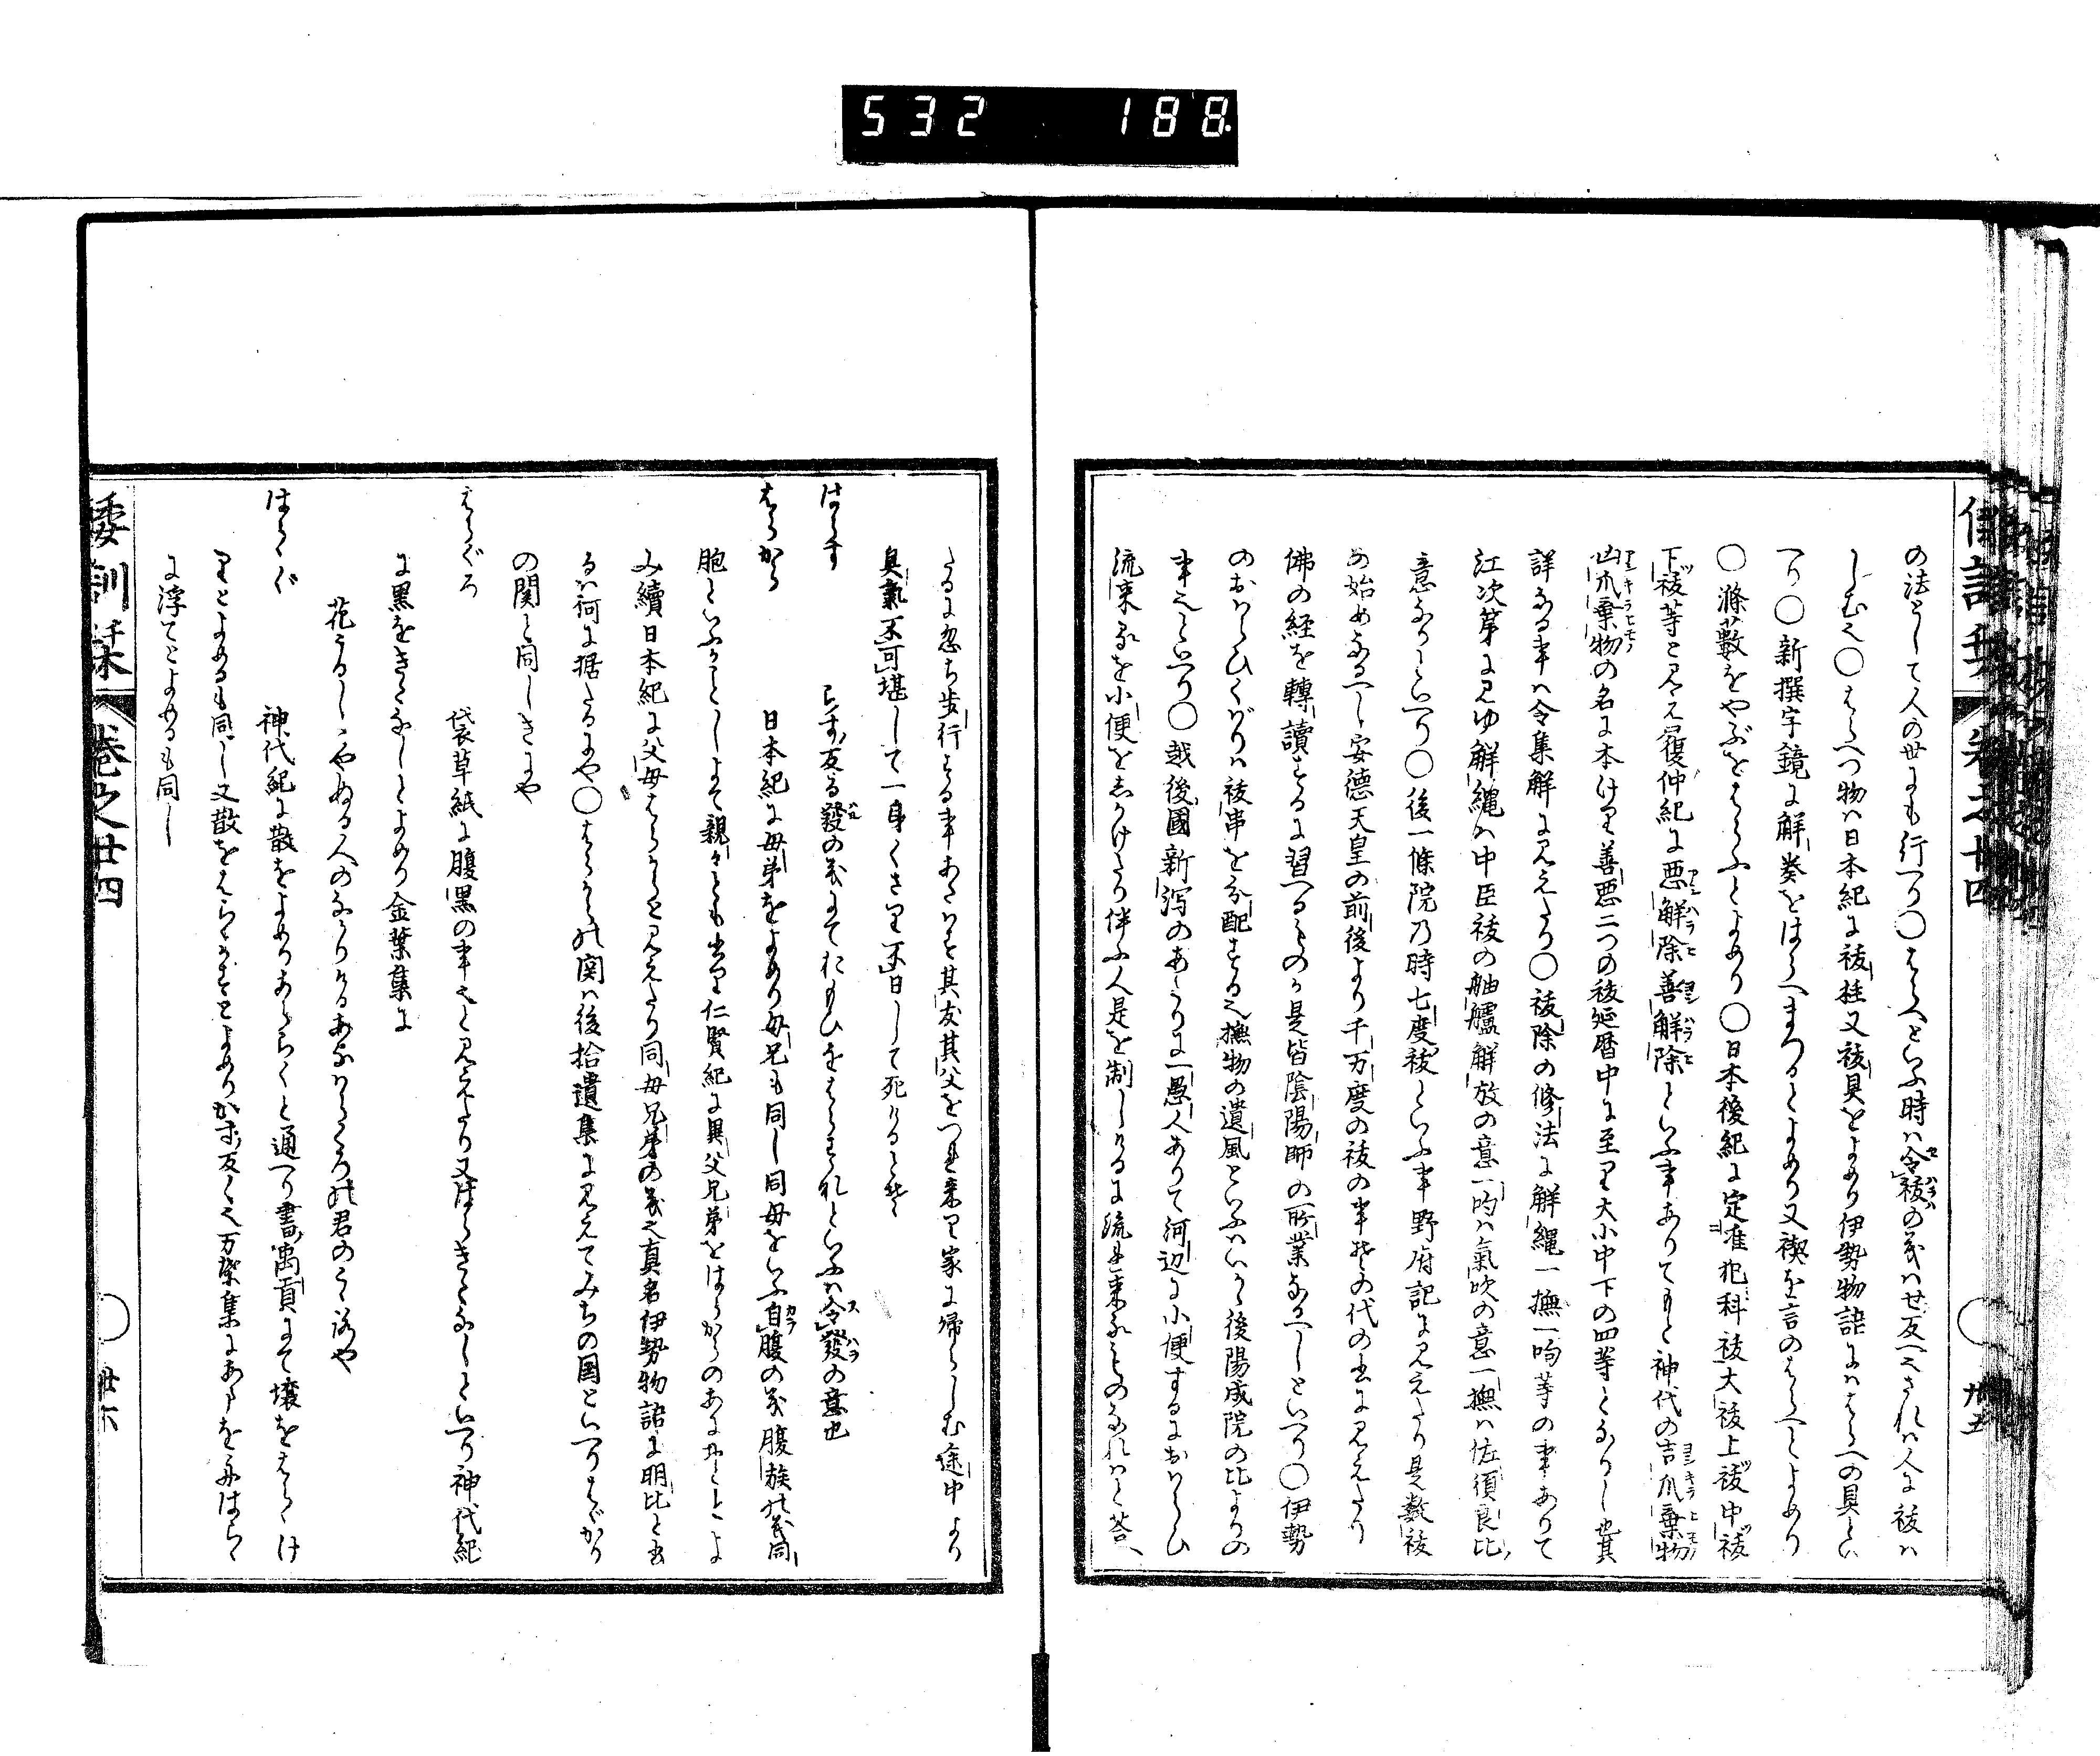 532 188
の法として人の世にも行へり〇はらへといふ時は令祓の義はせ反へ也されは人に祓は
しむ也〇はらへつ物は日本紀に祓柱又祓具をよめり伊勢物語にははらへの具とい
へり〇新撰字鏡に解奏をはらへまつるとよめり又禊を言のはらへとよめり
〇滌藪をやぶをはらふとよめり〇日本後紀に定准犯科祓大祓上祓中祓
下祓等と見え履仲紀に悪解除善解除といふ事ありてもと神代の吉爪棄物
凶爪棄物の名に本けり善悪二つの祓延暦中に至り大小中下の四等となりし也其
詳なる事は令集解に見えたり〇祓除の修法に解縄一撫一吻等の事ありて
江次第に見ゆ解縄は中臣祓の舳艫解放の意一吻は氣吹の意一撫は佐須良比
意なりといへり〇後一條院乃時七度祓といふ事野府記に見えたり是數祓
の始めなるへし安徳天皇の前後より千万度の祓の事其の代の書に見えたり
佛の経を轉讀するに習へるものか是皆陰陽師の所業なるへしといへり〇伊勢
のおはらひくばりは祓串を分配する也撫物の遺風といふはいかゝ後陽成院の比よりの
事也といへり〇越後國新泻のあたりに一愚人ありて河辺に小便するにおはらひ
流来るを小便をしかけたり伴ふ人是を制しけるに流れ来るものなれはと答へ
たるに忽ち歩行する事あたはす其友其父をつれ来り家に帰らしむ途中より
臭氣不可堪して一身くさり不日して死けるとぞ
はらす　らす反る發の義にておもひをはらすなといふは令發の意也
はらから　日本紀に母弟をよめり母兄も同し同母をいふ自腹の義腹族の義同
胞といふかことしよて親々とも書り仁賢紀に異父兄弟をはらからのあにおとゝとよ
み續日本紀に父母はらからと見えたり同母兄弟の義也真名伊勢物語に明比と書
るは何に据たるにや〇はらからの関は後拾遺集に見えてみちの国といへりはゞかり
の関と同しきにや
はらぐろ　袋草紙に腹黒の事也と見えたり又はらきたなしといへり神代紀
に黒をきたなしとよめり金葉集に
花うるしこやぬる人のなかりけるあなはらくろの君のこゝろや
はらゝぐ　神代紀に散をよめりあららくと通へり書禹貢にて壌をはらゝけ
りとよめるも同し又散をはらゝかすとよめりかす反く也万葉集にあまをふねはらゝ
に浮てとよめるも同し
倭訓栞　巻之廿四　〇　廿六